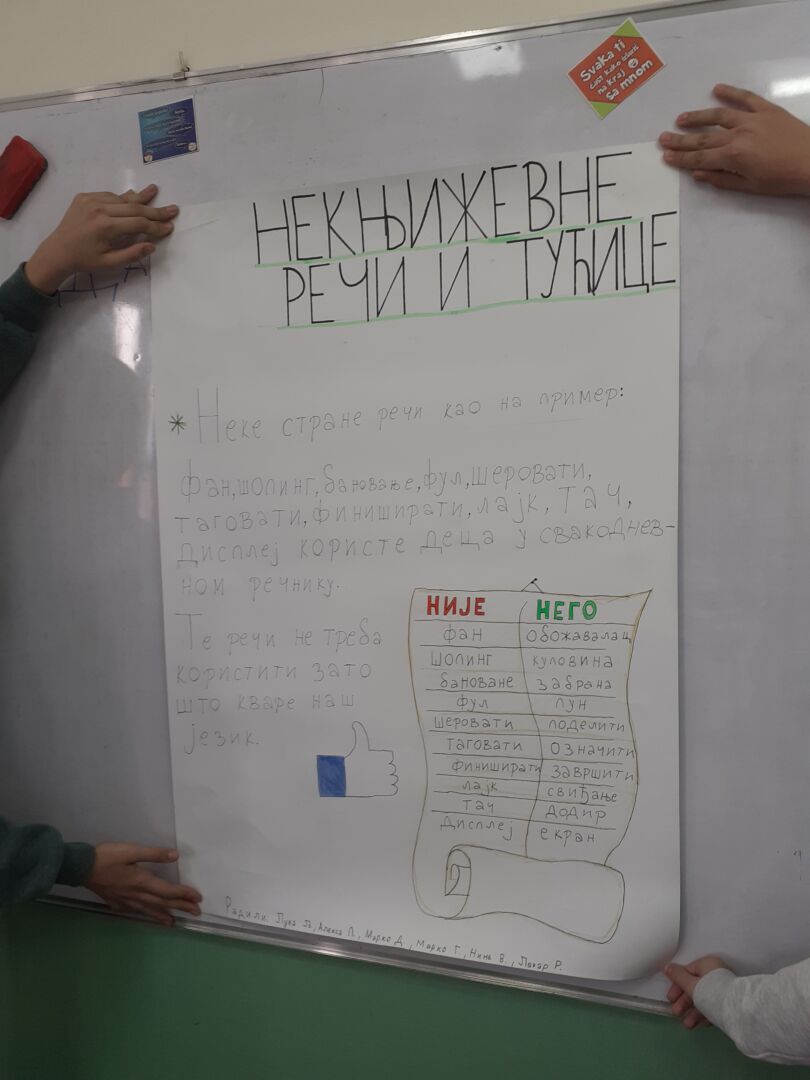 Svaka ti
čast kako izlaziš
na kraj
sa mnom
НЕКЊИЖЕВНЕ
РЕЧИ И ТУЂИЦЕ
* Неке стране речи као на пример:
фан, шопинг, бановање, фул, шеровати,
таговати, финиширати, лајк, тач,
дисплеј користе деца у свакоднев-
ном речнику.
Те речи не треба
користити зато
што кваре наш
језик.
НИЈЕ НЕГО
фан обожавалац
шопинг куповина
бановане забрана
фул пун
шеровати поделити
таговати означити
финиширати завршити
лајк свиђање
тач додир
дисплеј екран
Радили: Лука Љ., Алекса П., Марко Д., Марко Г., Нина В., Лазар Р.